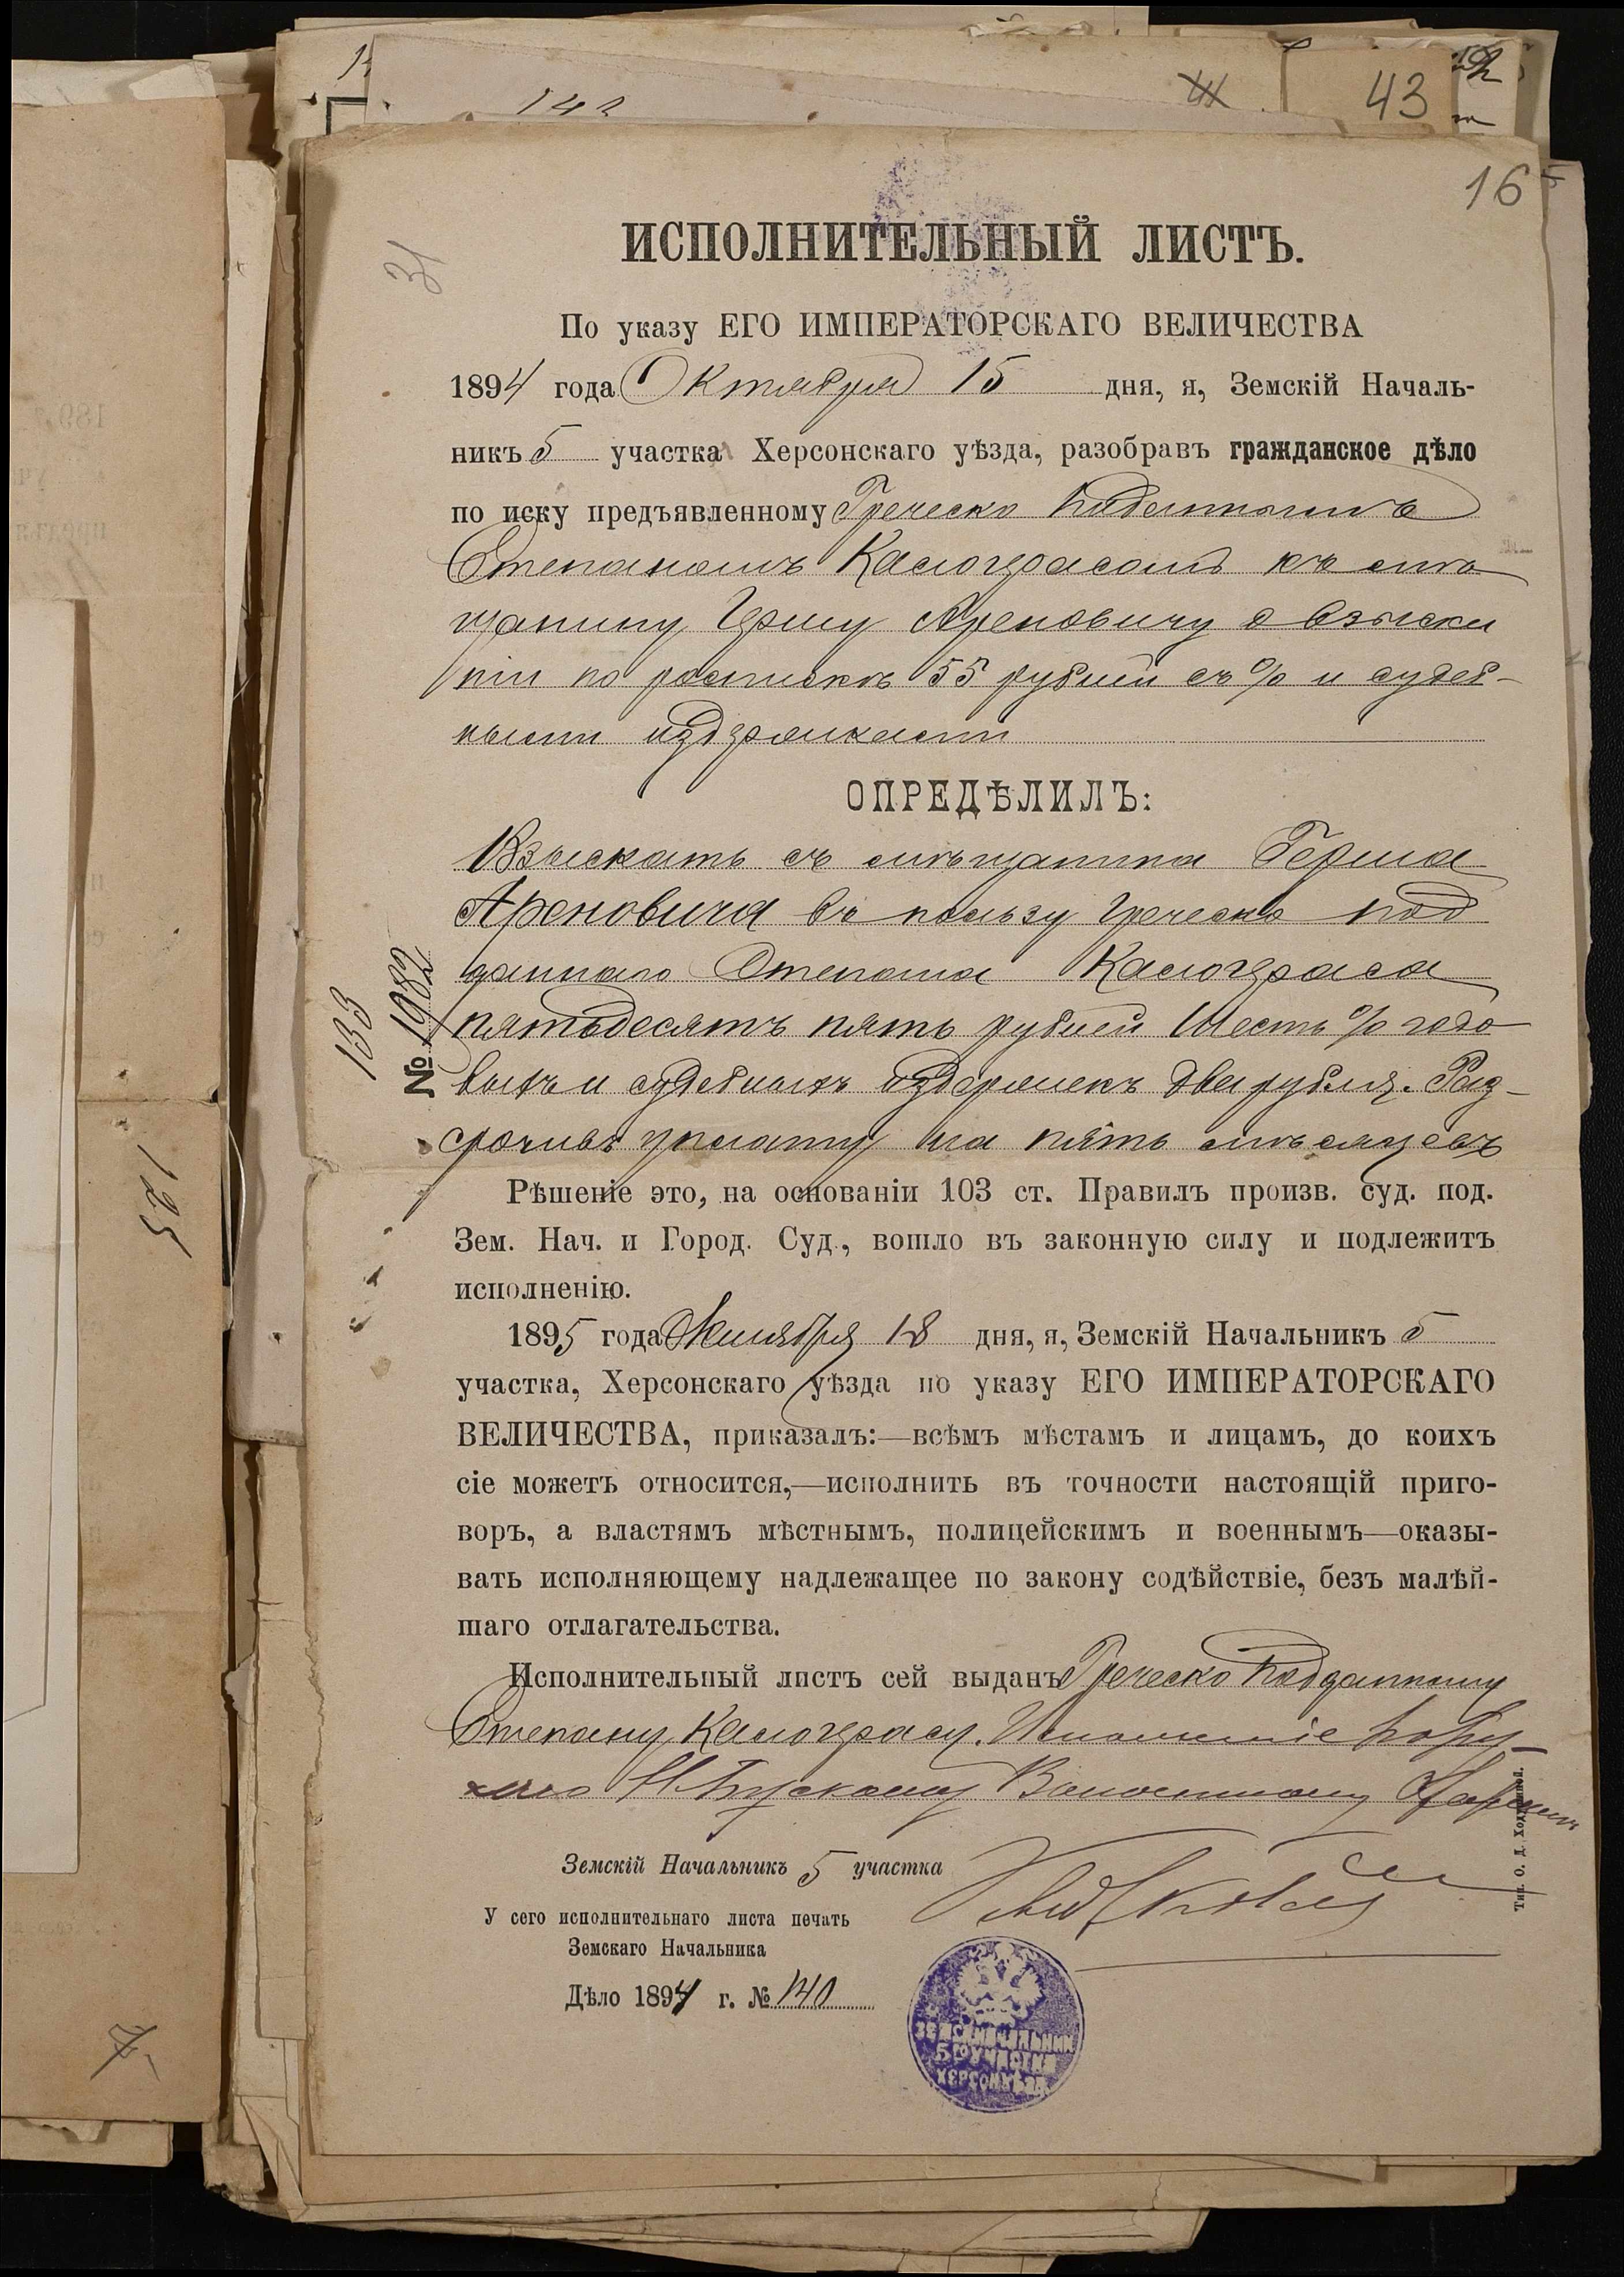 43
16
31
ИСПОЛНИТЕЛЬНЫЙ ЛИСТЪ.
По указу ЕГО ИМПЕРАТОРСКАГО ВЕЛИЧЕСТВА
1894 года Октября 15 дня, я, Земскій Началь-
никъ 5 участка Херсонскаго уѣзда, разобравъ гражданское дѣло
по иску предъявленному Греческо подданнымъ
Степаномъ Калограсомъ къ мѣ
щанину Гершу Ареновичу о взыска
ніи по роспискѣ 55 рублей съ % и судеб-
ными издержками
ОПРЕДѢЛИЛЪ:
Взыскать съ мѣщанина Герша
Ареновича въ пользу греческо под
даннаго Степана Калограса
пятьдесятъ пять рублей шесть % годо
выхъ и судебныхъ издержекъ два рубля. Раз-
срочивъ уплату на пять мѣсяцевъ
133
№ 1982
Рѣшеніе это, на основаніи 103 ст. Правилъ произв. суд. под.
Зем. Нач. и Город. Суд., вошло въ законную силу и подлежитъ
исполненію.
1895 года 18 дня, я, Земскій Начальникъ 5
участка, Херсонскаго уѣзда по указу ЕГО ИМПЕРАТОРСКАГО
ВЕЛИЧЕСТВА, приказалъ:—всѣмъ мѣстамъ и лицамъ, до коихъ
сіе можетъ относится,—исполнить въ точности настоящій приго-
воръ, а властямъ мѣстнымъ, полицейскимъ и военнымъ—оказы-
вать исполняющему надлежащее по закону содѣйствіе, безъ малѣй-
шаго отлагательства.
Исполнительный листъ сей выданъ Греческо подданному
Степану Калограсу. Исполненіе пору-
чено Н Бугскому Волостному
Земскій Начальникъ 5 участка
У сего исполнительнаго листа печать
Земскаго Начальника
Дѣло 1894 г. № 140
ЗЕМСК. НАЧАЛЬНИК
5ГО УЧАСТКА
ХЕРСОН. УѢЗДА
125